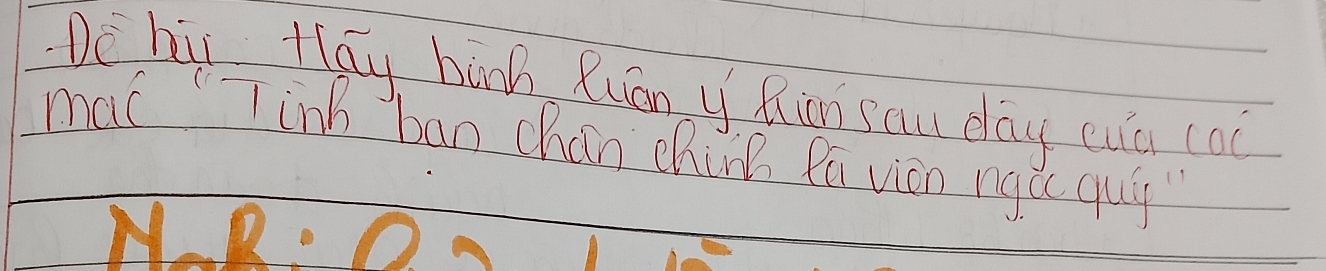 Đề bài Hãy bình luận ý kiến sau đây của Các
mác "Tình bạn chân chính là viên ngọc quý"